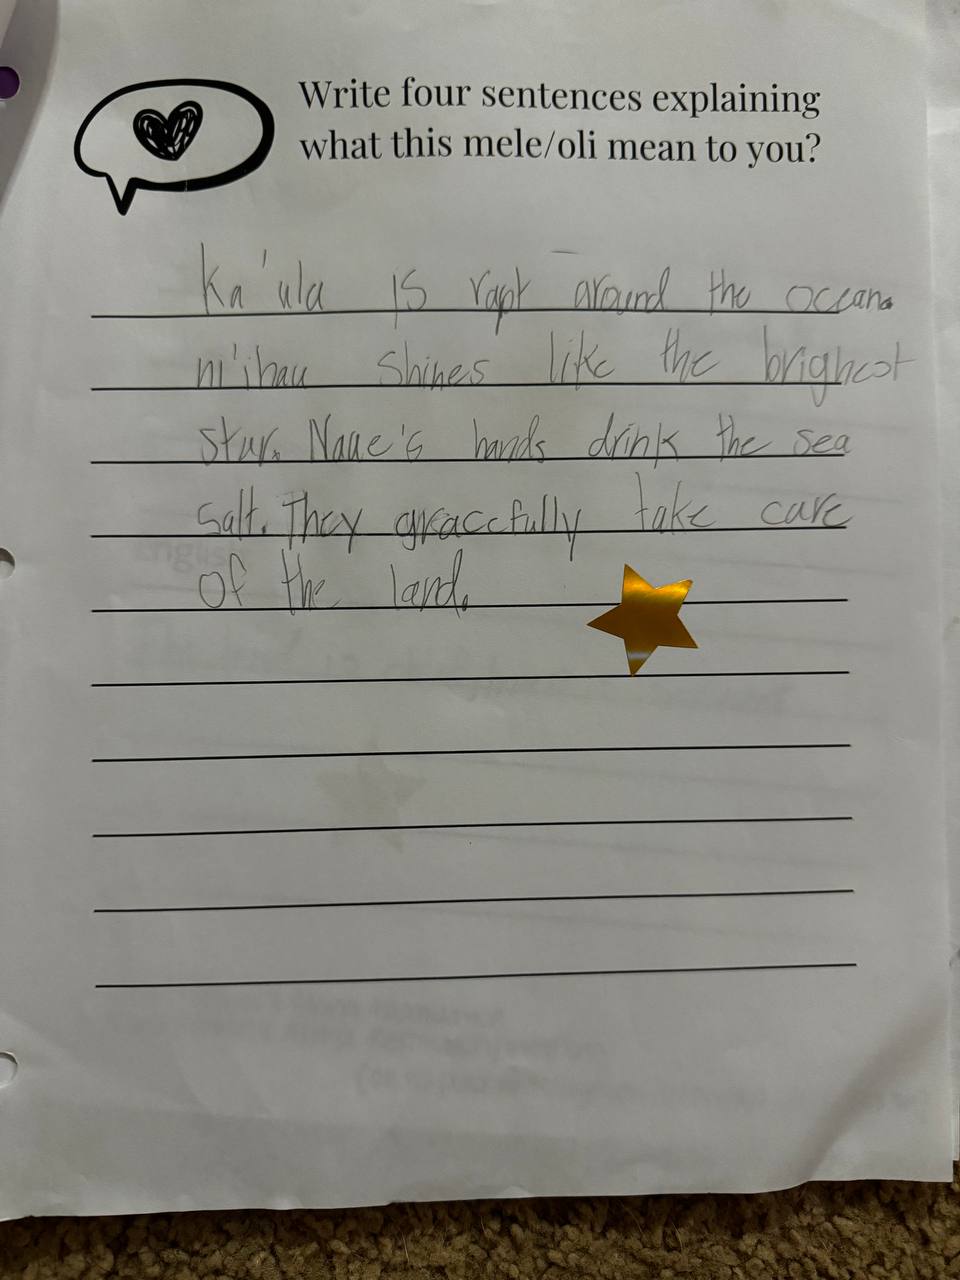 Write four sentences explaining
what this mele/oli mean to you?
Ka'ula is rapt around the ocean.
ni'ihau shines like the brighest
star. Naue's hands drink the sea
salt. They graccfully take care
of the land.